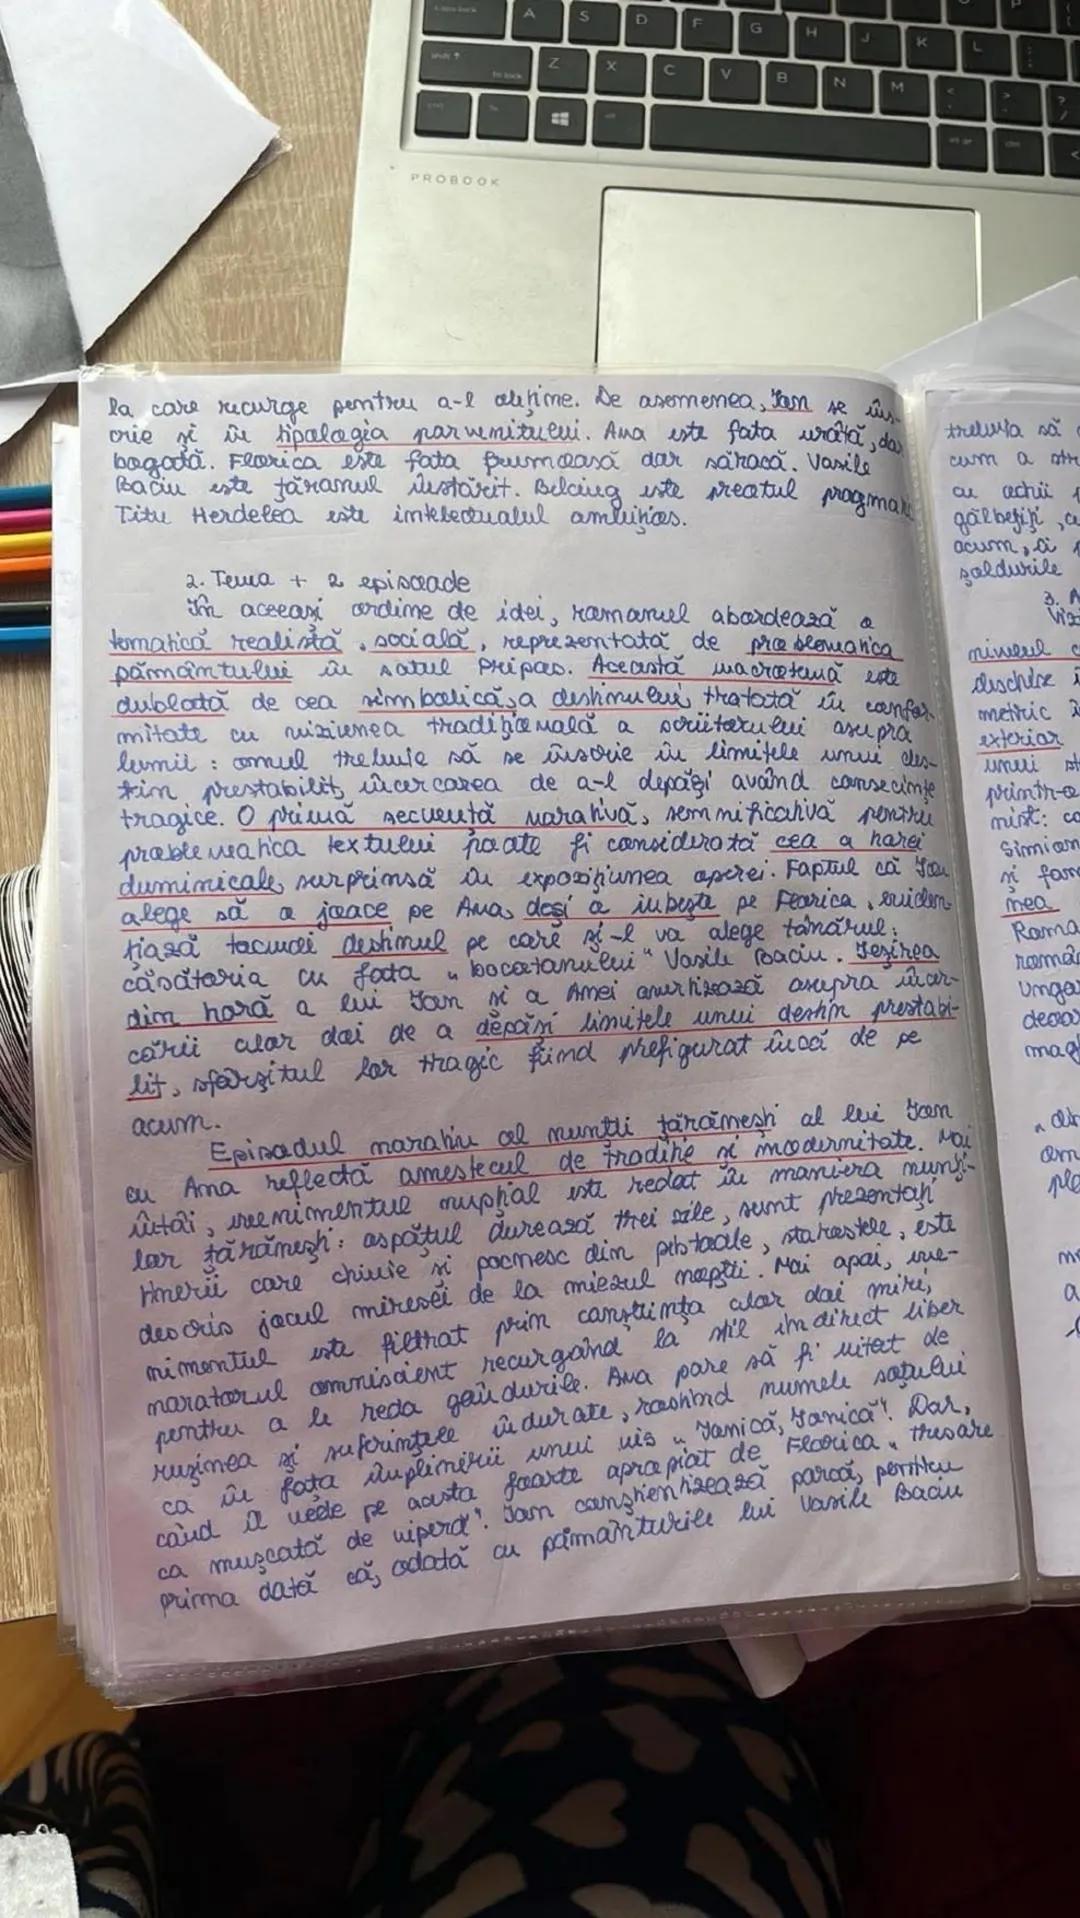 A S D F G H J K L
Z X C V B N M
PROBOOK
la care recurge pentru a-l obține. De asemenea, Ion se îns-
crie și în tipologia parvenitului. Ana este fata urâtă, dar
bogată. Florica este fata frumoasă dar săracă. Vasile
Baciu este țăranul înstărit. Belciug este preotul pragmatic
Titu Herdelea este intelectualul ambițios.
2. Tema + 2 episoade
În aceeași ordine de idei, romanul abordează o
tematică realistă, socială, reprezentată de problematica
pământului în satul Pripas. Această macrotemă este
dublată de cea simbolică, a destinului, tratată în confor-
mitate cu viziunea tradițională a scriitorului asupra
lumii: omul trebuie să se înscrie în limitele unui des-
tin prestabilit, încercarea de a-l depăși având consecințe
tragice. O primă secvență narativă, semnificativă pentru
problematica textului poate fi considerată cea a horei
duminicale, surprinsă în expozițiunea operei. Faptul că Ion
alege să o joace pe Ana, deși o iubește pe Florica, eviden-
țiază tocmai destinul pe care și-l va alege tânărul:
căsătoria cu fata "bocotanului" Vasile Baciu. Ieșirea
din horă a lui Ion și a Anei avertizează asupra încer-
cării celor doi de a depăși limitele unui destin prestabi-
lit, sfârșitul lor tragic fiind prefigurat încă de pe
acum.
Episodul narativ al nunții țărănești al lui Ion
cu Ana reflectă amestecul de tradiție și modernitate. Mai
întâi, evenimentul nupțial este redat în maniera nunți-
lor țărănești: ospățul durează trei zile, sunt prezentați
tinerii care chiuie și pocnesc din pistoale, starostele, este
descris jocul miresei de la miezul nopții. Mai apoi, eve-
nimentul este filtrat prin conștiința celor doi miri,
naratorul omniscient recurgând la stil indirect liber
pentru a le reda gândurile. Ana pare să fi uitat de
rușinea și suferințele îndurate, rostind numele soțului
ca în fața împlinirii unui vis "Ionică, Ionică". Dar,
când îl vede pe acesta foarte apropiat de Florica "tresare
ca mușcată de viperă". Ion conștientizează parcă, pentru
prima dată că, odată cu pământurile lui Vasile Baciu
trebuia să
cum a
cu ochii
gălbejiți, ce
acum, și
șoldurile
3. A
nivelul
deschise
metric
exterior
unui
printr-o
nist: co
Simion
și fam
mea
Roma
român
Ungar
deoar
mag